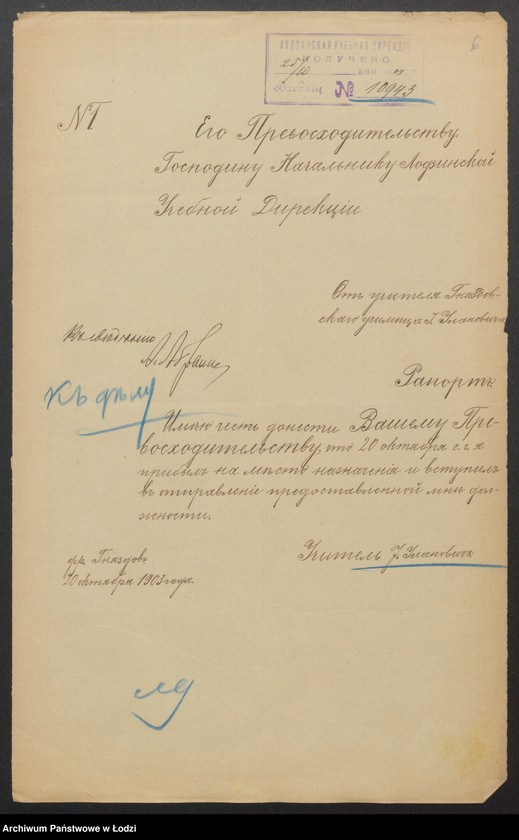 ЛОДЗИНСКАЯ УЧЕБНАЯ ДИРЕКЦІЯ
6
ПОЛУЧЕНО
25/10 дня 03
Входящ. № 10943
№ 1
Его Превосходительству,
Господину Начальнику Лодзинской
Учебной Дирекціи
Отъ учителя Гназдов-
скаго училища І. Улановича
Къ свѣдѣнію
Рапортъ
Къ дѣлу
Имѣю честь донести Вашему Пре-
восходительству, что 20 октября с. г. я
прибылъ на мѣсто назначенія и вступилъ
въ отправленіе предоставленной мнѣ дол-
жности.
Учитель І. Улановичъ
дер. Гназдовъ
20 октября 1903 года.
Archiwum Państwowe w Łodzi